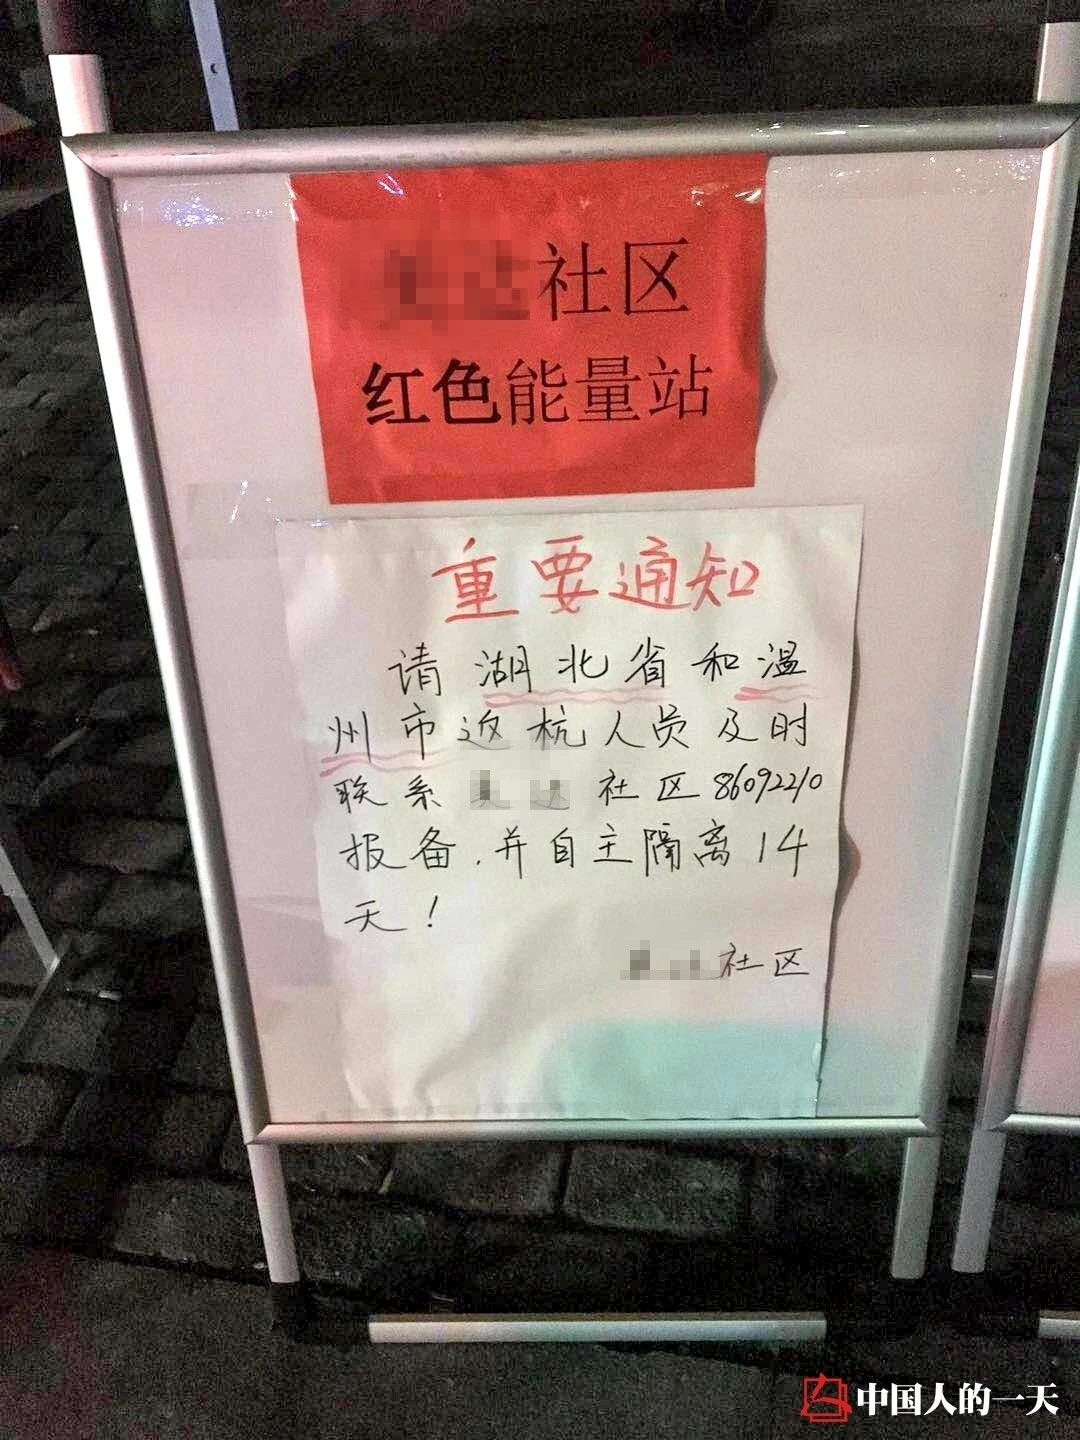 社区
红色能量站
重要通知
请湖北省和温
州市返杭人员及时
联系社区86092210
报备，并自主隔离14
天！
社区
中国人的一天